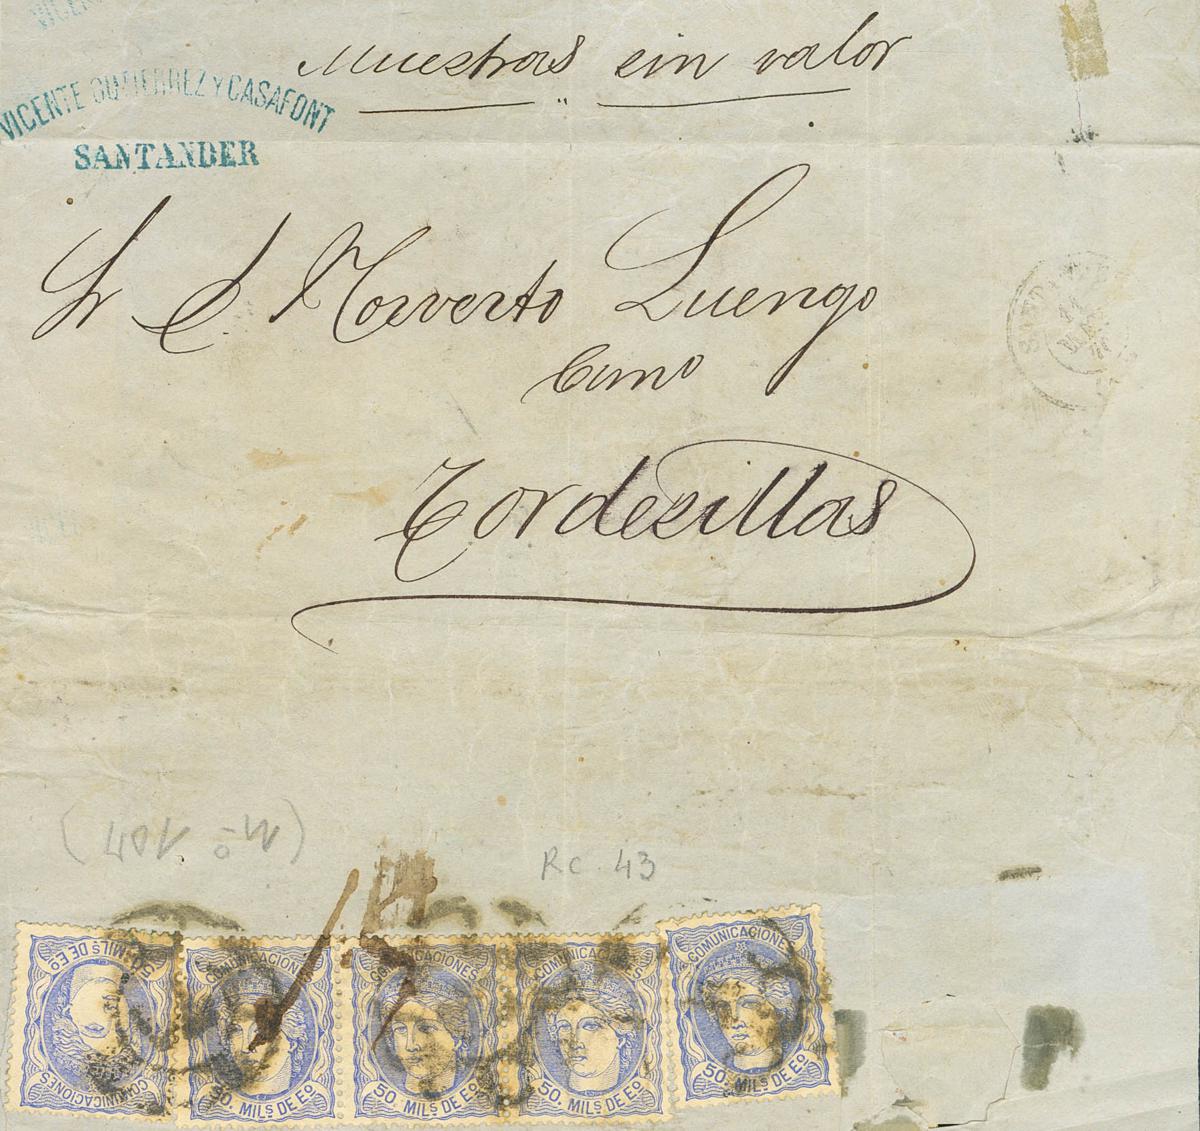 Muestras sin valor
VICENTE GUTIERREZ Y CASAFONT
SANTANDER
Sr D Norverto Luengo
Tordesillas
RC. 43
15
COMUNICACIONES
50. MILS DE EO
COMUNICACIONES
50. MILS DE EO
COMUNICACIONES
50. MILS DE EO
COMUNICACIONES
50. MILS DE EO
COMUNICACIONES
50. MILS DE EO